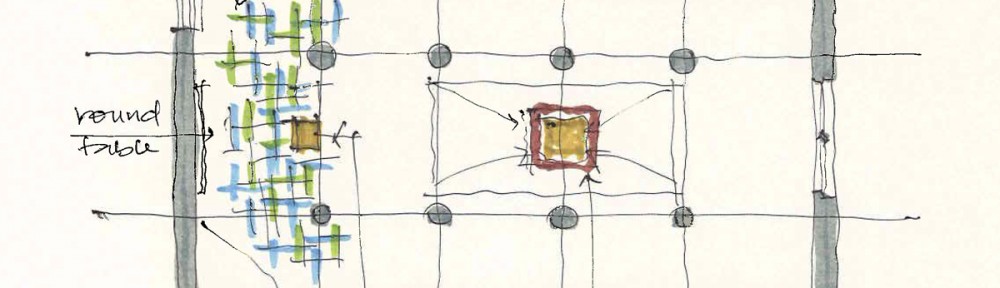 round
table